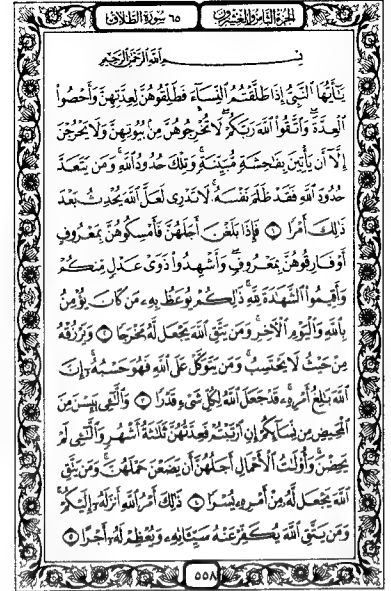 الجزء الثامن والعشرون
٦٥ سورة الطلاق
بِسْمِ اللَّهِ الرَّحْمَٰنِ الرَّحِيمِ
يَٰٓأَيُّهَا ٱلنَّبِىُّ إِذَا طَلَّقْتُمُ ٱلنِّسَآءَ فَطَلِّقُوهُنَّ لِعِدَّتِهِنَّ وَأَحْصُوا۟
ٱلْعِدَّةَ ۖ وَٱتَّقُوا۟ ٱللَّهَ رَبَّكُمْ ۖ لَا تُخْرِجُوهُنَّ مِنۢ بُيُوتِهِنَّ وَلَا يَخْرُجْنَ
إِلَّآ أَن يَأْتِينَ بِفَٰحِشَةٍ مُّبَيِّنَةٍ ۚ وَتِلْكَ حُدُودُ ٱللَّهِ ۚ وَمَن يَتَعَدَّ
حُدُودَ ٱللَّهِ فَقَدْ ظَلَمَ نَفْسَهُۥ ۚ لَا تَدْرِى لَعَلَّ ٱللَّهَ يُحْدِثُ بَعْدَ
ذَٰلِكَ أَمْرًا ١ فَإِذَا بَلَغْنَ أَجَلَهُنَّ فَأَمْسِكُوهُنَّ بِمَعْرُوفٍ
أَوْ فَارِقُوهُنَّ بِمَعْرُوفٍ وَأَشْهِدُوا۟ ذَوَىْ عَدْلٍ مِّنكُمْ
وَأَقِيمُوا۟ ٱلشَّهَٰدَةَ لِلَّهِ ۚ ذَٰلِكُمْ يُوعَظُ بِهِۦ مَن كَانَ يُؤْمِنُ
بِٱللَّهِ وَٱلْيَوْمِ ٱلْءَاخِرِ ۚ وَمَن يَتَّقِ ٱللَّهَ يَجْعَل لَّهُۥ مَخْرَجًا ٢ وَيَرْزُقْهُ
مِنْ حَيْثُ لَا يَحْتَسِبُ ۚ وَمَن يَتَوَكَّلْ عَلَى ٱللَّهِ فَهُوَ حَسْبُهُۥٓ ۚ إِنَّ
ٱللَّهَ بَٰلِغُ أَمْرِهِۦ ۚ قَدْ جَعَلَ ٱللَّهُ لِكُلِّ شَىْءٍ قَدْرًا ٣ وَٱلَّٰٓـِٔى يَئِسْنَ مِنَ
ٱلْمَحِيضِ مِن نِّسَآئِكُمْ إِنِ ٱرْتَبْتُمْ فَعِدَّتُهُنَّ ثَلَٰثَةُ أَشْهُرٍ وَٱلَّٰٓـِٔى لَمْ
يَحِضْنَ ۚ وَأُو۟لَٰتُ ٱلْأَحْمَالِ أَجَلُهُنَّ أَن يَضَعْنَ حَمْلَهُنَّ ۚ وَمَن يَتَّقِ
ٱللَّهَ يَجْعَل لَّهُۥ مِنْ أَمْرِهِۦ يُسْرًا ٤ ذَٰلِكَ أَمْرُ ٱللَّهِ أَنزَلَهُۥٓ إِلَيْكُمْ ۚ
وَمَن يَتَّقِ ٱللَّهَ يُكَفِّرْ عَنْهُ سَيِّـَٔاتِهِۦ وَيُعْظِمْ لَهُۥٓ أَجْرًا ٥
٥٥٨